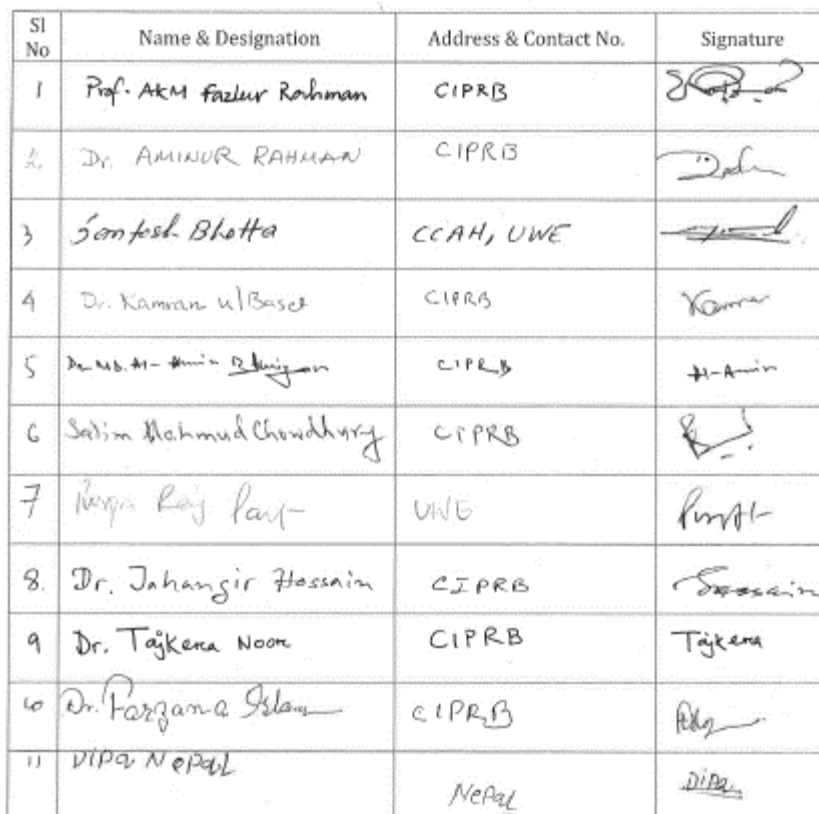 Sl No Name & Designation Address & Contact No. Signature
1 Prof. AKM Fazlur Rahman CIPRB
2. Dr. AMINUR RAHMAN CIPRB
3 Santosh Bhatta CCAH, UWE
4 Dr. Kamran ul Baset CIPRB Kamran
5 Dr. Md. Al-Amin Bhuiyan CIPRB Al-Amin
6 Salim Mahmud Chowdhury CIPRB
7 Puspa Raj Pant UWE
8. Dr. Jahangir Hossain CIPRB Hossain
9 Dr. Tajkera Noor CIPRB Tajkera
10 Dr. Farzana Islam CIPRB
11 Dipa Nepal Nepal Dipa